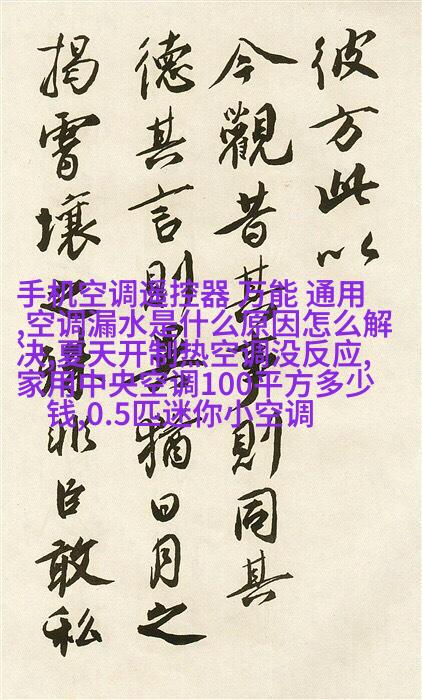 彼方此以
今觀昔其事則同其
德其言則其猶日月之
揭霄壤非臣敢私
手机空调遥控器 万能 通用
,空调漏水是什么原因怎么解
决,夏天开制热空调没反应,
家用中央空调100平方多少
钱,0.5匹迷你小空调